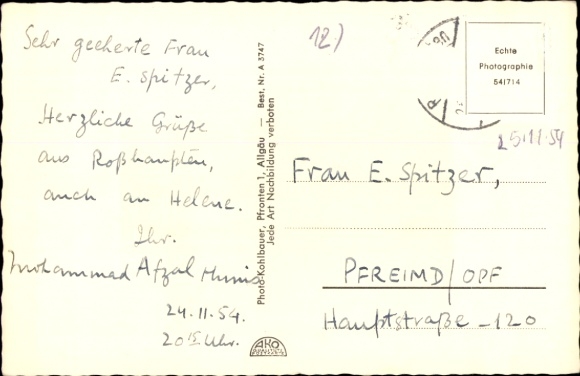 Sehr geeherte Frau
E. Spitzer,
Herzliche Grüße
aus Roßhaupten,
auch an Helene.
Ihr.
Mohammad Afzal
24.11.54.
20 15 Uhr.
12)
Photo-Kohlbauer, Pfronten 1, Allgäu — Best. Nr. A 3747
Jede Art Nachbildung verboten
AKO
Echte
Photographie
541714
25.11.54
Frau E. Spitzer,
PFREIMD/OPF
Hauptstraße - 120